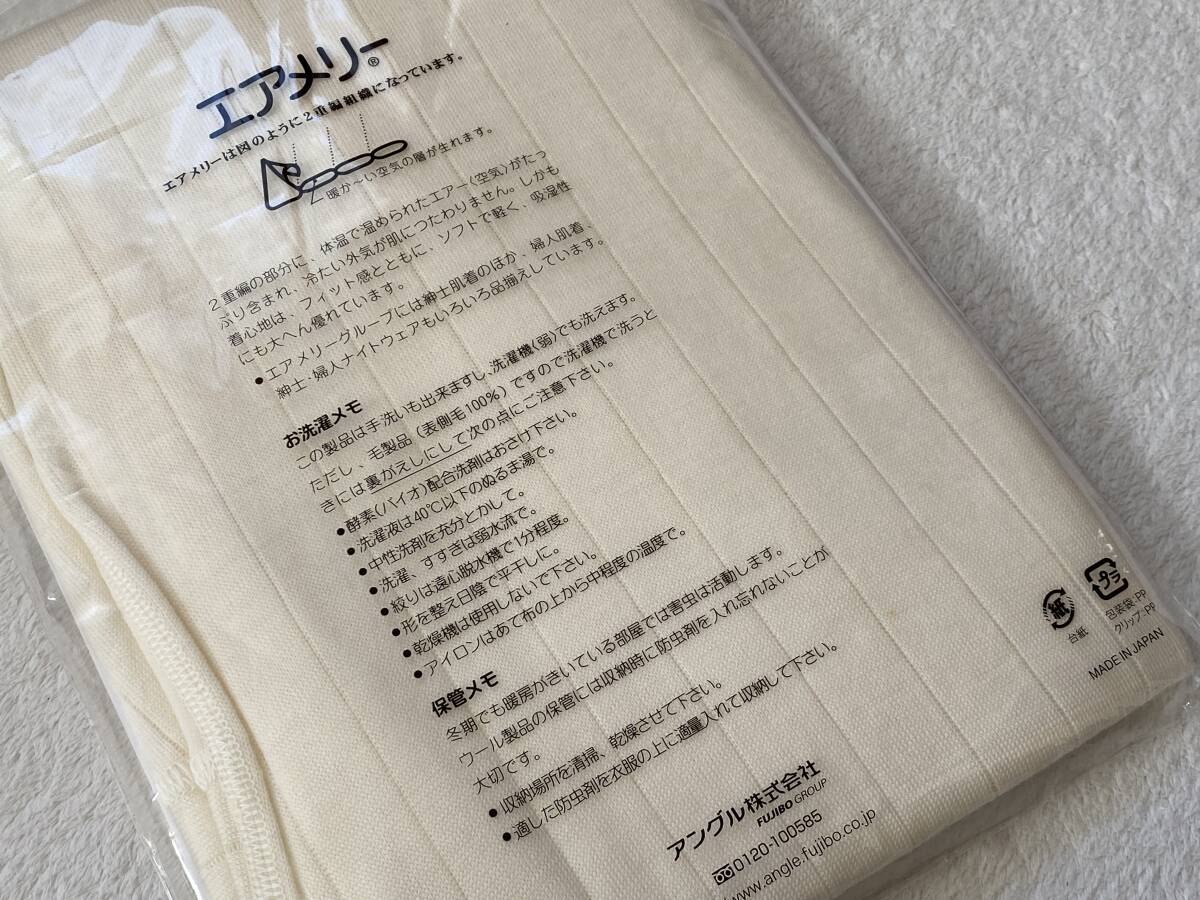 エアメリー®
エアメリーは図のように2重編組織になっています。
暖か〜い空気の層が生れます。
2重編の部分に、体温で温められたエアー(空気)がたっ
ぷり含まれ、冷たい外気が肌につたわりません。しかも
着心地は、フィット感とともに、ソフトで軽く、吸湿性
にも大へん優れています。
●エアメリーグループには紳士肌着のほか、婦人肌着、
紳士・婦人ナイトウェアもいろいろ品揃えしています。
お洗濯メモ
この製品は手洗いも出来ますし、洗濯機(弱)でも洗えます。
ただし、毛製品(表側毛100%)ですので洗濯機で洗うと
きには裏がえしにして次の点にご注意下さい。
●酵素(バイオ)配合洗剤はおさけ下さい。
●洗濯液は40℃以下のぬるま湯で。
●中性洗剤を充分とかして。
●洗濯、すすぎは弱水流で。
●絞りは遠心脱水機で1分程度。
●形を整え日陰で平干しに。
●乾燥機は使用しないで下さい。
●アイロンはあて布の上から中程度の温度で。
保管メモ
冬期でも暖房がきいている部屋では害虫は活動します。
ウール製品の保管には収納時に防虫剤を入れ忘れないことが
大切です。
●収納場所を清掃、乾燥させて下さい。
●適した防虫剤を衣服の上に適量入れて収納して下さい。
紙
台紙
プラ
包装袋:PP
クリップ:PP
MADE IN JAPAN
アングル株式会社
FUJIBO GROUP
0120-100585
www.angle.fujibo.co.jp